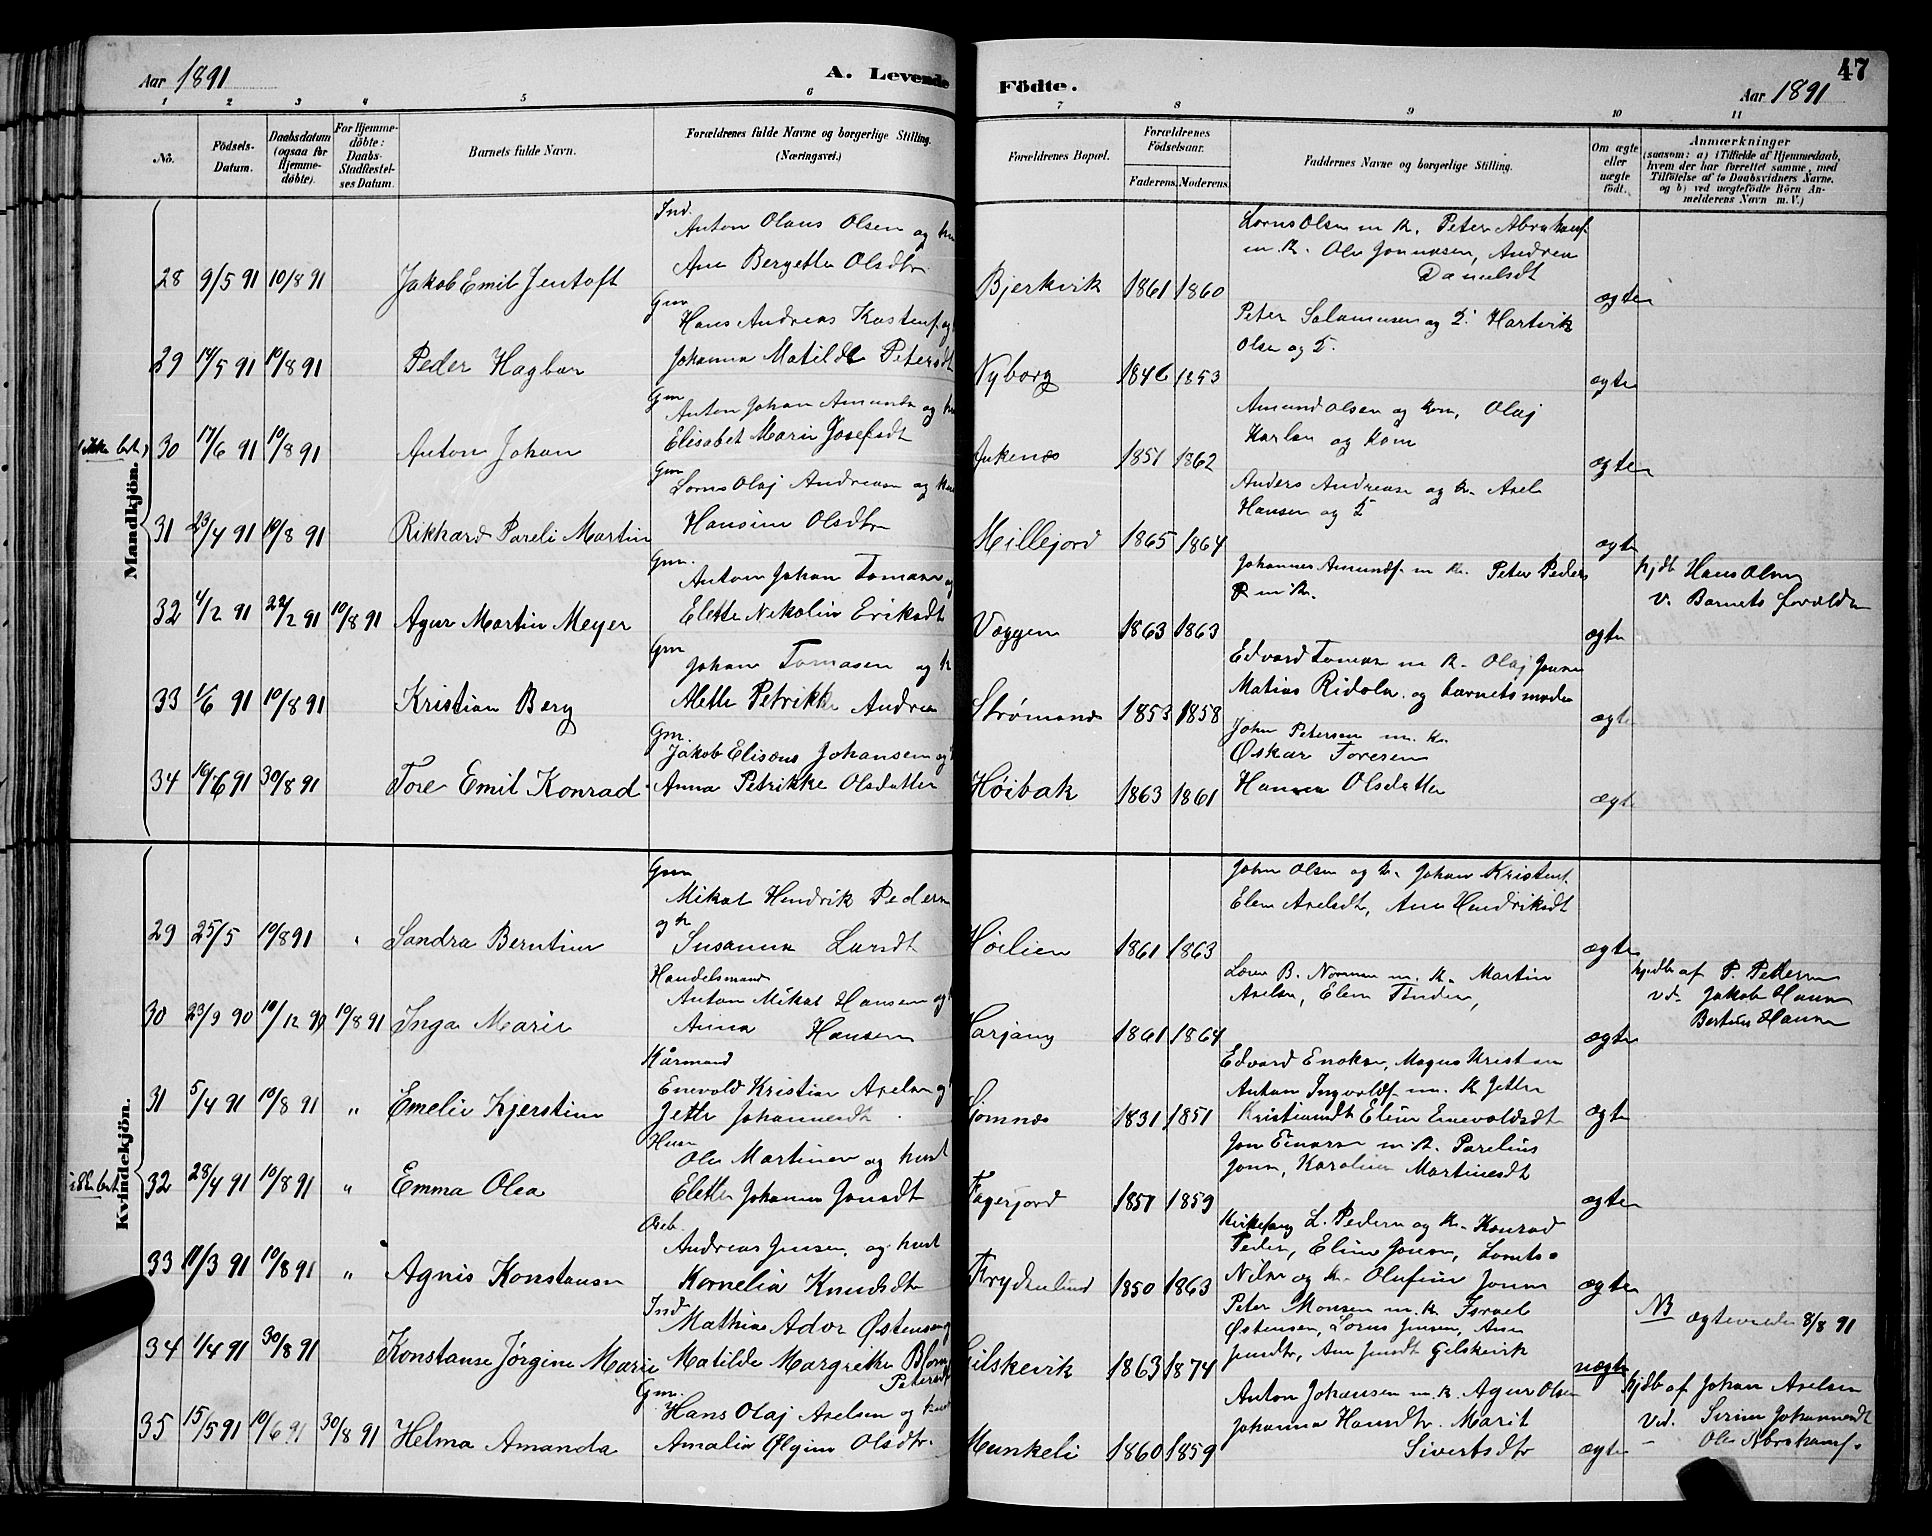 Aar 1891
A. Levende Födte.
47
Aar 1891
1 2 3 4 5 6 7 8 9 10 11
No.
Födsels-Datum.
Daabsdatum (ogsaa for Hjemme-döbte).
For Hjemme-döbte: Daabs-Stadfæstel-ses Datum.
Barnets fulde Navn.
Forældrenes fulde Navne og borgerlige Stilling. (Næringsvei.)
Forældrenes Bopæl.
Forældrenes Födselsaar.
Faderens. Moderens.
Faddernes Navne og borgerlige Stilling.
Om ægte eller uægte født.
Anmærkninger
(saasom: a) i Tilfælde af Hjemmedaab,
hvem der har forrettet samme, med
Tilföielse af to Daabsvidners Navne.
og b) ved uægtefödte Börn An-
melderens Navn m. V.)
Mandkjön.
28 9/5 91 10/8 91 Jakob Emil Jentoft
Ind. Anton Olaus Olsen og
Ane Bergette Olsdtr
Bjerkvik 1861 1860
Lorns Olsen m k. Peter Abrahamf.
m. k. Ole Jonnasen, Andrea
Danielsdt
ægte
29 14/5 91 10/8 91 Peder Hagbar
Gm Hans Andreas Kastenf. og
Johanna Matilde Petersdt
Nyborg 1846 1853
Peter Salamonsen og D. Hartvik
Olsen og D.
ægte
30 17/6 91 10/8 91 Anton Johan
Gm Anton Johan Amunds og
Elisabet Marie Josefsdt
Ankenæs 1851 1862
Amund Olsen og kone, Olaj
Karlsen og Kone
ægte
31 23/4 91 10/8 91 Rikhard Pareli Martin
Gm Lorns Olaj Andreasen og
Hansine Olsdtr
Millejord 1865 1864
Anders Andreasen og k. Axel
Hansen og D
ægte
32 4/2 91 22/2 91 10/8 91 Agur Martin Meyer
Gm. Anton Johan Tomasen og
Elette Nikolin Eriksdt
Væggen 1863 1863
Johannes Amundf. m k. Peter Peders
m k.
ægte
hjdb Hans Olsen
v. Barnets forældre
33 1/6 91 10/8 91 Kristian Berg
Gm Johan Tomasen og k
Alette Petrikke Andrea
Strømsnæs 1853 1858
Edvard Tomas m k. Olaj Jonsen
Matias Ridoln. og barnets moder
ægte
34 10/6 91 30/8 91 Tore Emil Konrad
Gm. Jakob Elisæus Johansen og
Anna Petrikke Olsdatter
Høibak 1863 1861
John Petersen m. k.
Øskar Toresen
Hanna Olsdatter
ægte
Kvindekjön.
29 25/5 10/8 91 " Sandra Berntine
Gm Mikal Hendrik Pedersen
og k Susanna Larsdt
Høilien 1861 1863
John Olsen og k. Johan Kristenf.
Elen Axelsdt, Ane Hendriksdt
ægte
30 23/9 90 10/12 90 10/8 91 Inga Marie
Handelsmand
Anton Mikal Hansen og
Anna Hansen
Harjang 1861 1864
Lorns B. Normann m. k. Martin
Axelsen, Elen Tinden,
ægte
hjdb af P. Pettersen
vd. Jakob Hansen
Bertius Hansen
31 5/4 91 10/8 91 " Emelie Kjerstine
Kårmand
Enevold Kristian Axelsen og
Jette Johannesdt
Sjomnæs 1831 1851
Edvard Enoksen, Magnus Kristian
Anton Ingvaldf. m. k Jette
Kristiansdt Eline Enevoldsdt
ægte
32 28/4 91 10/8 91 " Emma Olea
Husm
Ole Martinsen og hust
Elette Johanna Jonsdt
Fagerjord 1857 1859
Jon Einarsen m. k. Parelius
Jonsen, Karoline Martinesdt
ægte
33 11/3 91 10/8 91 " Agnis Konstanse
Arb.
Andreas Jensen, og hust
Kornelia Knudsdt
Frydenlund 1850 1863
Kirkesang L. Pedersen og k. Konrad
Peder, Eline Jonsen, Lornts
Nilsen og k. Olufine Jonsen
ægte
34 1/4 91 30/8 91 Konstanse Jørgine Marie
Ind
Mathias Ador Østensen og
Matilde Margrethe Blom
Petersdt
Gilskevik 1863 1874
Peter Monsen m. k. Israel
Østensen, Lorns Jensen, Ane
Jensdtr, Ane Jensdt Gilskevik
uægte
NB ægteviede 8/8 91
35 15/5 91 10/6 91 30/8 91 Helma Amanda
Gm.
Hans Olaj Axelsen og hust
Amalia Ølgine Olsdtr.
Munkeli 1860 1859
Anton Johansen m. k. Agur Olsen
Johanna Hansdtr. Marit
Sivertsdtr
ægte
hjdb af Johan Axelsen
ved. Serine Johannesdt
" Ole Abrahamf.